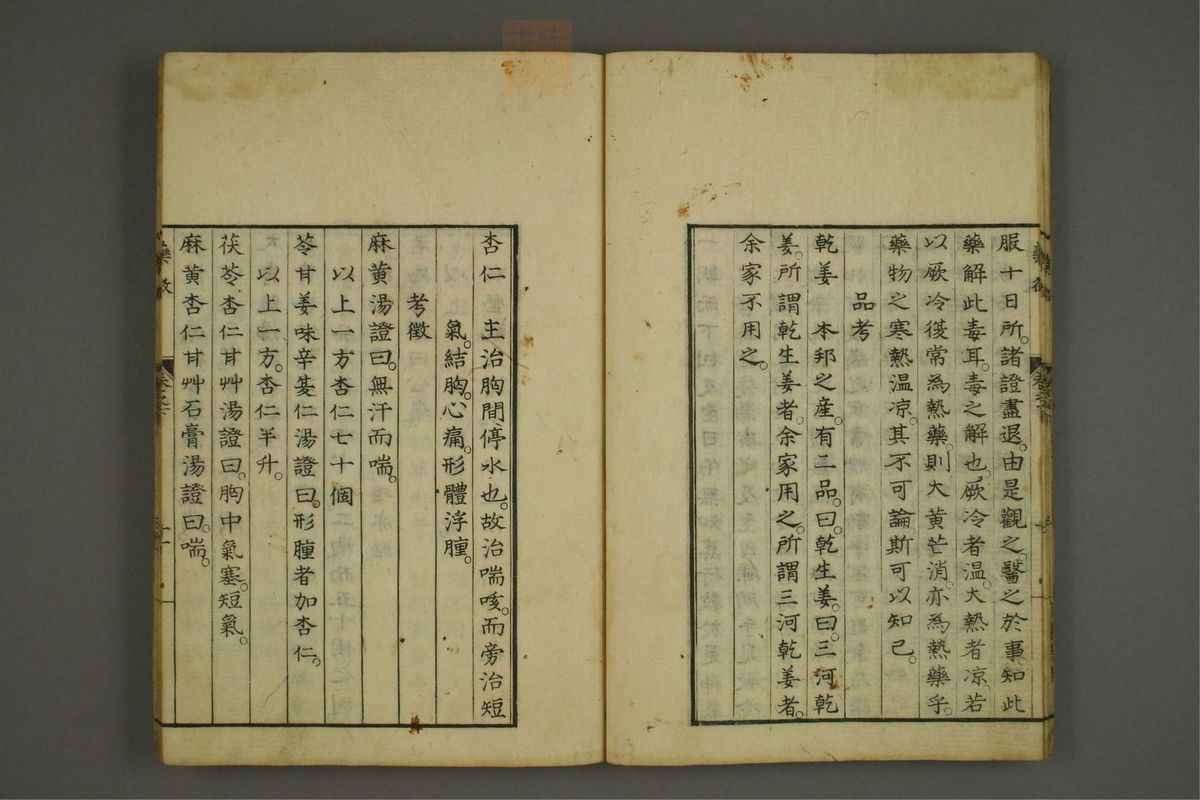 服十日所。諸證盡退。由是觀之。醫之於事知此
藥解此毒耳。毒之解也。厥冷者温。大熱者凉。若
以厥冷復常為熱藥。則大黄芒消亦為熱藥乎。
藥物之寒熱温凉。其不可論斯可以知已。
品考
乾姜 本邦之産。有二品。曰。乾生姜。曰。三河乾
姜。所謂乾生姜者。余家用之。所謂三河乾姜者。
余家不用之。
杏仁 主治胸間停水也。故治喘咳。而旁治短
氣。結胸。心痛。形體浮腫。
考徵
麻黄湯證曰。無汗而喘。
以上一方杏仁七十個
苓甘姜味辛夏仁湯證曰。形腫者加杏仁。
以上一方。杏仁半升。
茯苓杏仁甘艸湯證曰。胸中氣塞。短氣。
麻黄杏仁甘艸石膏湯證曰。喘。
藥徵